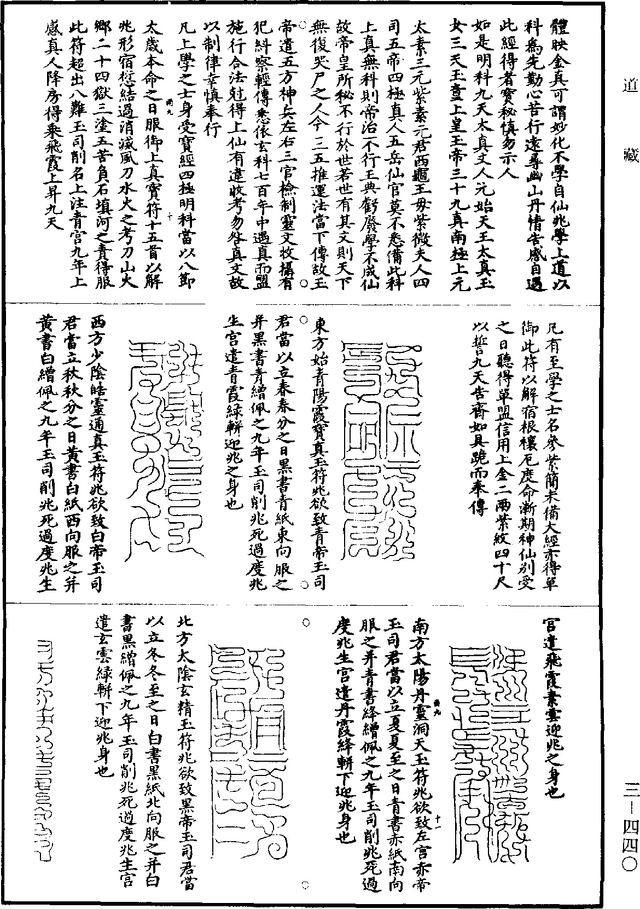 道藏
體映金真可謂妙化不學自仙兆學上道以
科為先勤心苦行遠尋幽山丹情告感自遇
此經得者寶秘慎勿示人
如是明科九天太真丈人元始天王太真玉
女三天玉童上皇玉帝三十九真南極上元
太素三元紫素元君西龜王母紫微夫人四
司五帝四極真人五岳仙官莫不悉備此科
上真無科則帝治不行王典虧廢學不成仙
故帝皇所秘不行於世若世有其文則天下
無復哭尸之人今三五推運法當下傳故玉
帝遣五方神兵左右三官檢制靈文故撝有
犯糾察輕傳悉依玄科七百年中遇真而盟
施行合法尅得上仙有違收考勿咎真文故
以制律幸慎奉行
凡上學之士身受寶經四極明科當以八節
太歲本命之日服御上真寶符十五首以解
兆形宿愆結過消滅風刀水火之考刀山火
鄉二十四獄三塗五苦負石填河之責得服
此符超出八難玉司削名上注青宮九年上
感真人降房得乘飛霞上昇九天
凡有至學之士名參紫簡未備大經亦得單
御此符以解宿根穰厄度命漸期神仙別受
之日聽得單盟信用上金二兩紫紋四十尺
以誓九天告齋如具跪而奉傳
東方始青陽霞寶真玉符兆欲致青帝玉司
君當以立春春分之日黑書青紙東向服之
并黑書青繒佩之九年玉司削兆死過度兆
生宮遣青霞綠軿迎兆之身也
西方少陰皓靈通真玉符兆欲致白帝玉司
君當立秋秋分之日黃書白紙西向服之并
黃書白繒佩之九年玉司削兆死過度兆生
宮遣飛霞素雲迎兆之身也
南方太陽丹靈洞天玉符兆欲致左宮赤帝
玉司君當以立夏夏至之日青書赤紙南向
服之并青書絳繒佩之九年玉司削兆死過
度兆生宮遣丹霞絳軿下迎兆身也
北方太陰玄精玉符兆欲致黑帝玉司君當
以立冬冬至之日白書黑紙北向服之并白
書黑繒佩之九年玉司削兆死過度兆生宮
遣玄雲綠軿下迎兆身也
三—四四〇